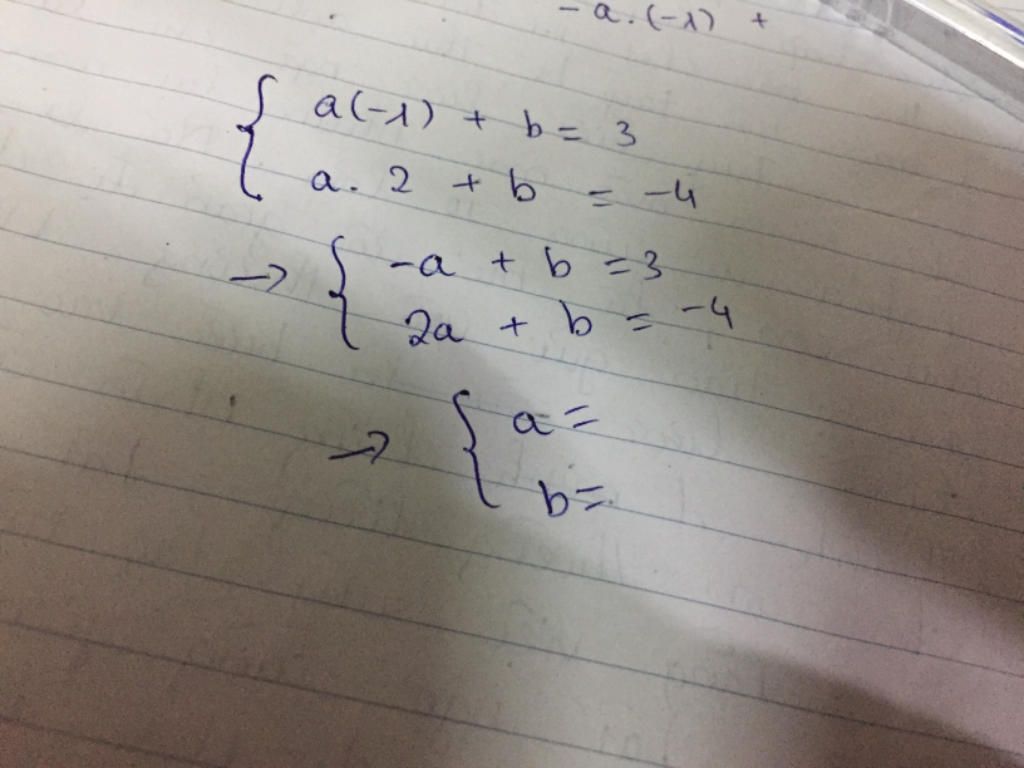 -a.(-1) +
{ a(-1) + b = 3
a. 2 + b = -4
→ { -a + b = 3
2a + b = -4
→ { a =
b =